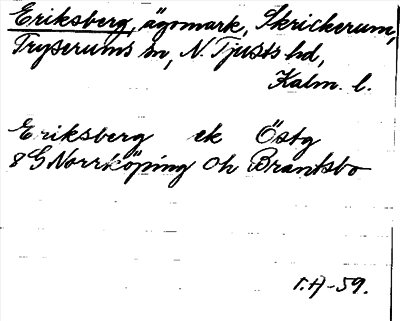 Eriksberg, ägomark, Skrickerum,
Tryserums sn, N. Tjusts hd,
Kalm. l.
Eriksberg ek Östg
8G Norrköping Oh Brantsbo
T.H-59.